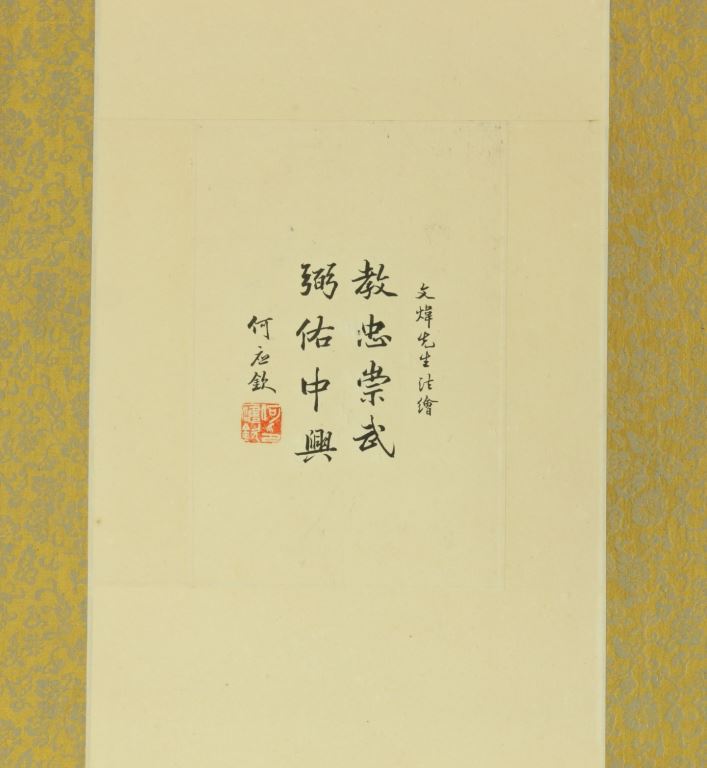 文煒先生法繪
教忠崇武
弼佑中興
何应欽
何應欽印